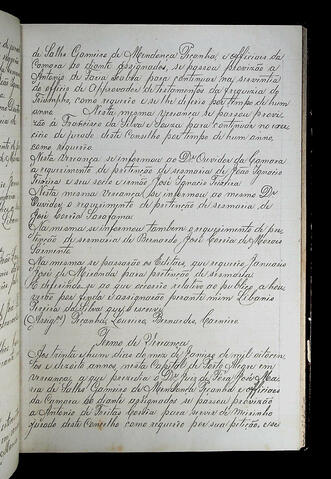 de Salles Gameiro de Mendonça Peçanha, e officiaes da
Camara ao diante assignados, se passou provizão a
Antonio de Faria Seabra para continuar na serventia
do officio de Approvador de testamentos da freguezia do
Triumpho, como requereo e se lhe deferio por tempo de hum
anno. Nesta mesma vereança se passou provi-
zão a Francisco da Silva e Souza para continuar no exer-
cicio de jurado deste Conselho por tempo de hum anno,
como requereo.
Nesta vereança se informou ao Dr Ouvidor da Comarca
o requerimento de pertenção de sesmaria de João Ignacio
Teixeira e seu socio e irmão José Ignacio Teixeira
Nesta mesma vereança se informou ao mesmo Dr
Ouvidor o requerimento de pertenção de sesmaria de
José Corrêa Sarafana.
Na mesma se informou tambem o requerimento de per-
tenção de sesmaria de Bernardo José Corrêa de Moraes
Sarmento.
Na mesma se passarão os Editaes, que requereo Januario
José de Miranda para pertenção de sesmaria.
E deferindo-se ao que occorreo relativo ao publico, a hou-
verão por finda e assignarão perante mim Libanio
Pereira da Silva que o escrevi
(Assigos) Peçanha, Loureiro, Bernardes, Carneiro.
Termo de Vereança
Aos trinta e hum dias do mez de Janeiro de mil oitocen-
tos e dezoito annos, nesta Capital de Porto Alegre em
vereança, a que prezedio o Dr Juiz de Fóra José Ma
ria de Salles Gameiro de Mendonça Peçanha e officiaes
da Camara ao diante assignados se passou provizão
a Antonio de Freitas Corrêa para servir de Meirinho
jurado deste Conselho como requereo por sua petição, e se